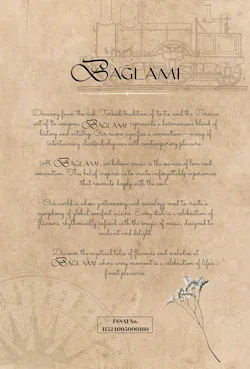 BAGLAMI
Drawing from the rich Turkish tradition of
and the Persian
art of
BAGLAMI represents a harmonious blend of
history and artistry. Our name signifies a connection - a way of
intertwining classical elegance with contemporary pleasure.
At BAGLAMI, we believe music is the essence of love and
connection. This belief inspires us to create unforgettable experiences
that resonate deeply with the soul.
Our world is where gastronomy and mixology meet to create a
symphony of global comfort cuisine. Every dish is a celebration of
flavours rhythmically infused with the magic of music, designed to
enchant and delight.
Discover the mystical tales of flavours and melodies at
BAGLAMI where every moment is a celebration of life's
finest pleasures.
FSSAI No.